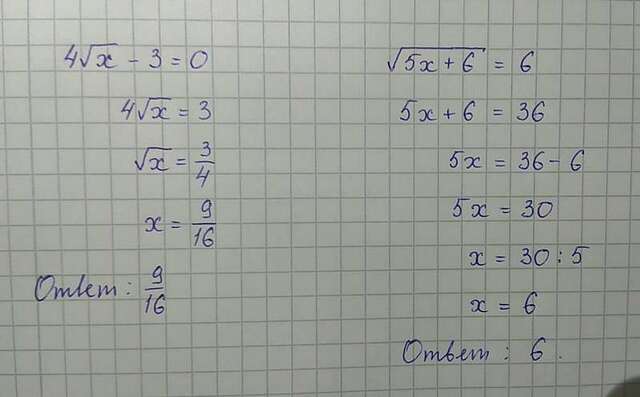 4√x - 3 = 0
4√x = 3
√x = 3/4
x = 9/16
Ответ: 9/16
√(5x + 6) = 6
5x + 6 = 36
5x = 36 - 6
5x = 30
x = 30 : 5
x = 6
Ответ: 6.